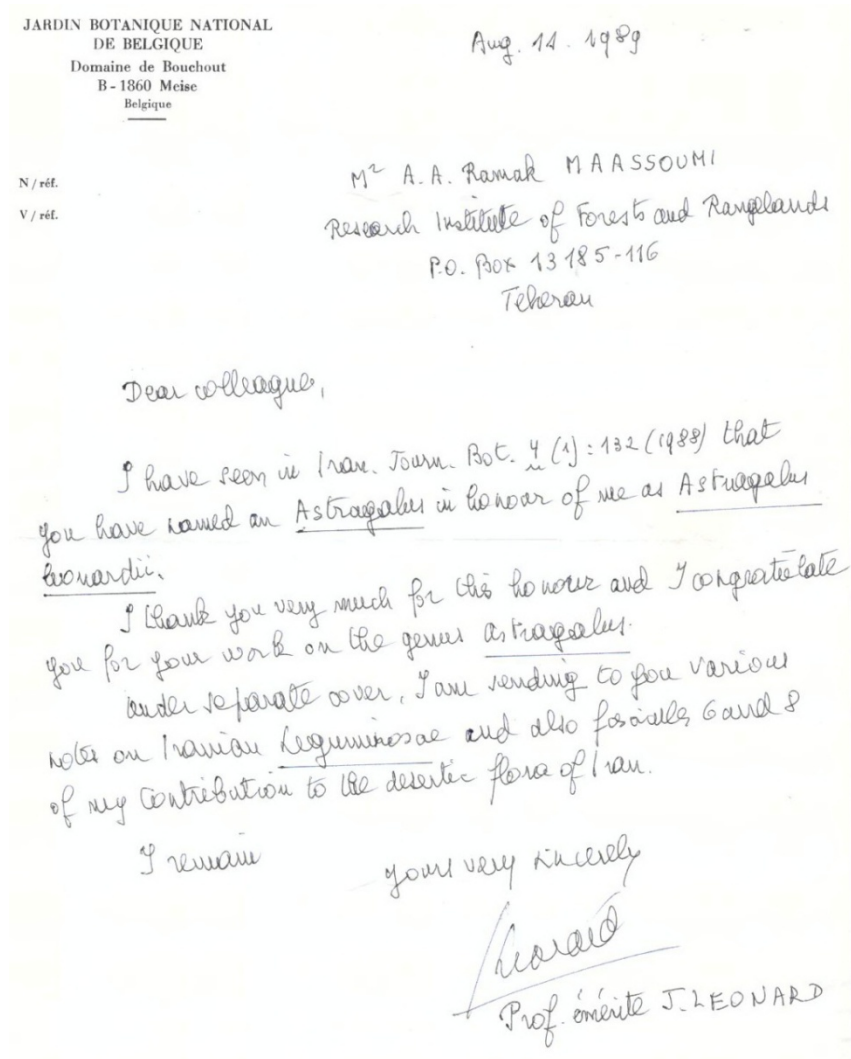 JARDIN BOTANIQUE NATIONAL
DE BELGIQUE
Domaine de Bouchout
B - 1860 Meise
Belgique
Aug. 14. 1989
N / réf.
V / réf.
Mr A.A. Ramak MAASSOUMI
Research Institute of Forests and Rangelands
P.O. Box 13185-116
Teheran
Dear colleague,
I have seen in Iran. Journ. Bot. 4 (1) : 132 (1988) that
you have named an Astragalus in honour of me as Astragalus
leonardii.
I thank you very much for this honour and I congratulate
you for your work on the genus Astragalus.
Under separate cover, I am sending to you various
notes on Iranian Leguminosae and also fascicules 6 and 8
of my Contribution to the desertic flora of Iran.
I remain
yours very sincerely
Leonard
Prof. émérite J. LEONARD